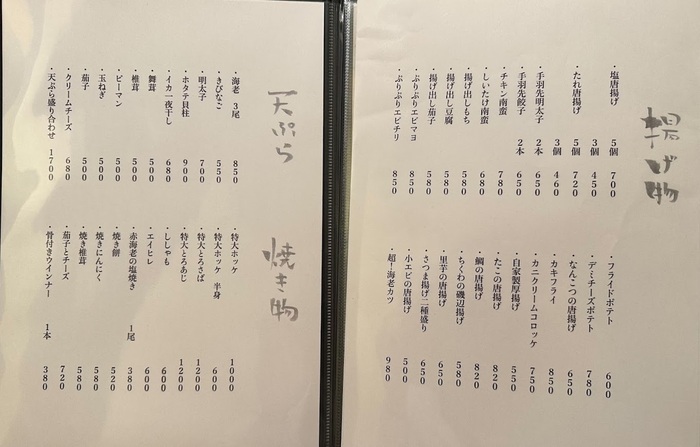 揚げ物
・塩唐揚げ 5個 700
3個 450
・たれ唐揚げ 5個 720
3個 460
・手羽先明太子 2本 650
・手羽先餃子 2本 650
・チキン南蛮 780
・しいたけ南蛮 680
・揚げ出しもち 580
・揚げ出し豆腐 580
・揚げ出し茄子 580
・ぷりぷりエビマヨ 850
・ぷりぷりエビチリ 850
・フライドポテト 600
・デミチーズポテト 780
・なんこつの唐揚げ 650
・カキフライ 850
・カニクリームコロッケ 750
・自家製厚揚げ 550
・たこの唐揚げ 820
・鯛の唐揚げ 820
・ちくわの磯辺揚げ 580
・里芋の唐揚げ 650
・さつま揚げ二種盛り 650
・小エビの唐揚げ 500
・超!海老カツ 980
天ぷら
・海老 3尾 850
・きびなご 550
・明太子 700
・ホタテ貝柱 900
・イカ一夜干し 680
・舞茸 500
・椎茸 500
・ピーマン 500
・玉ねぎ 500
・茄子 500
・クリームチーズ 680
・天ぷら盛り合わせ 1700
焼き物
・特大ホッケ 1000
・特大ホッケ 半身 600
・特大とろさば 1200
・特大とろあじ 1200
・ししゃも 600
・エイヒレ 600
・赤海老の塩焼き 1尾 380
・焼き餅 520
・焼きにんにく 580
・焼き椎茸 580
・茄子とチーズ 720
・骨付きウインナー 1本 380